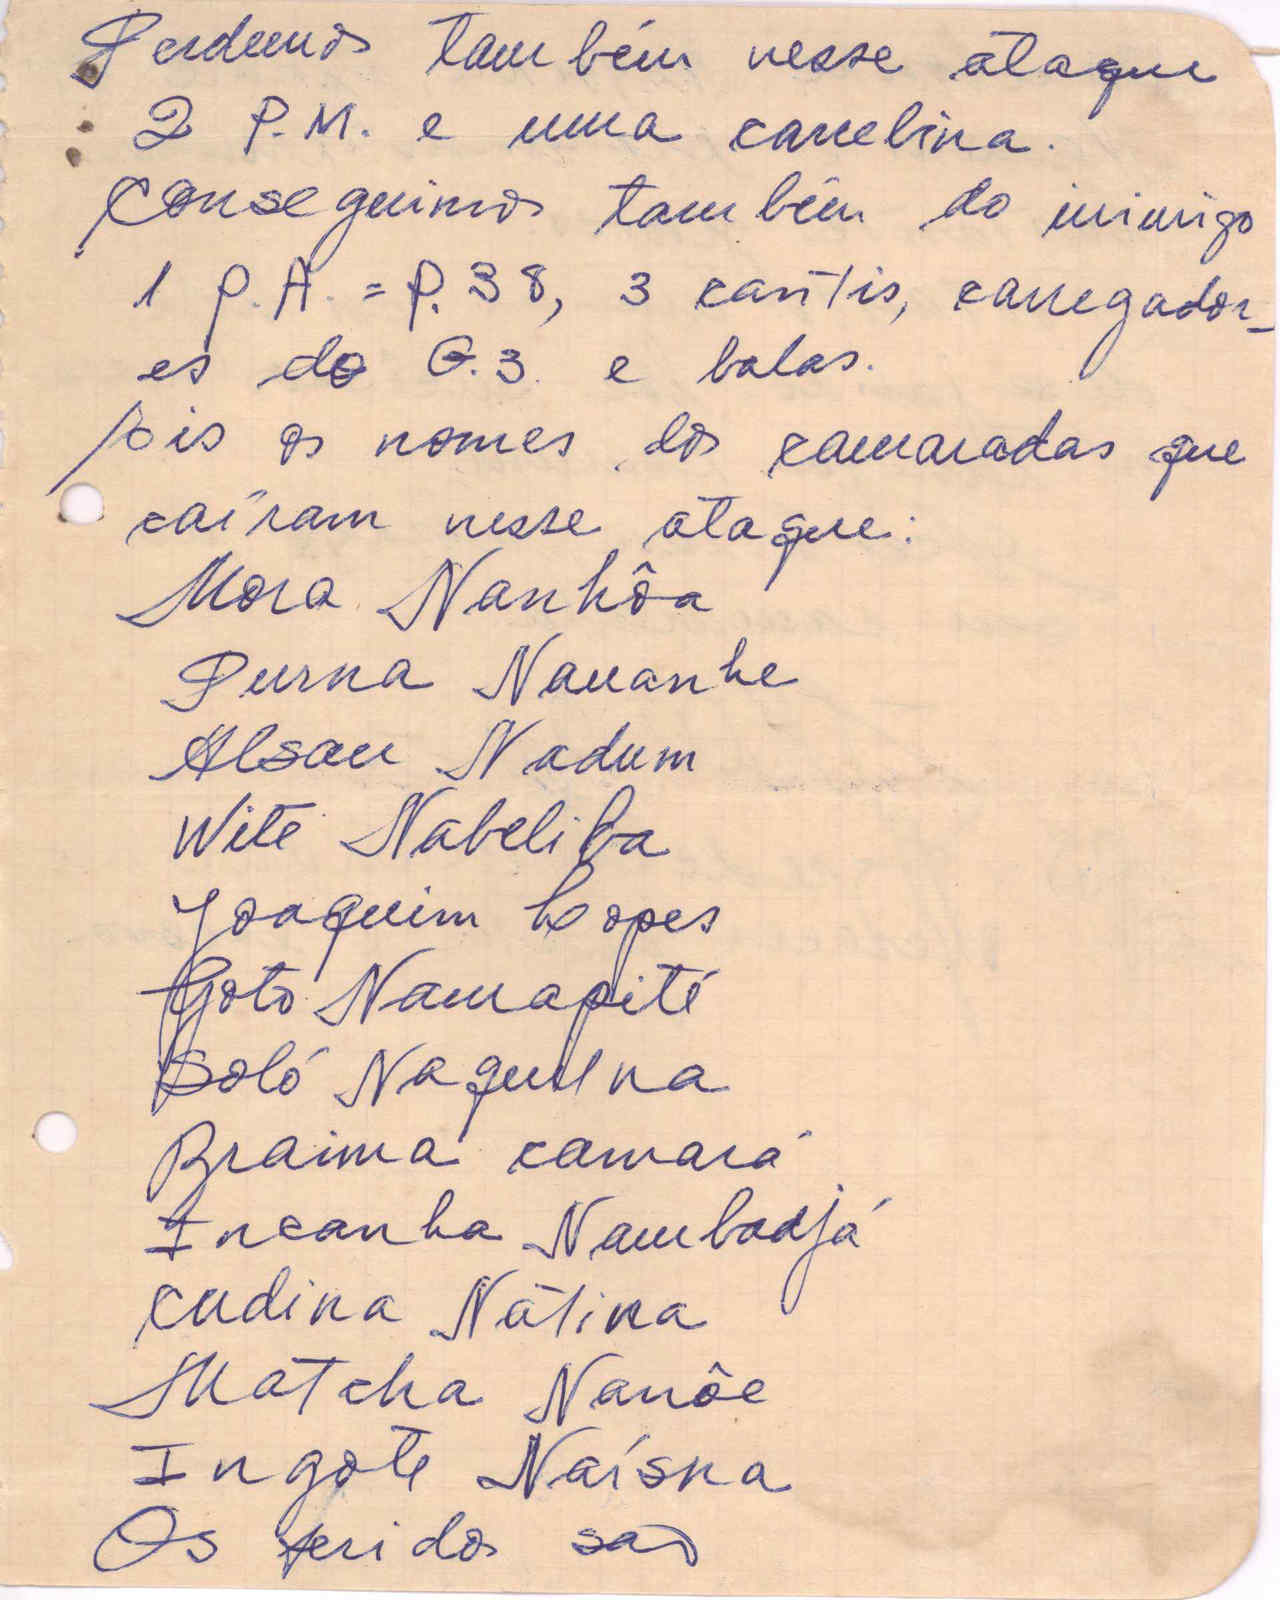 Perdemos também nesse ataque
2 P.M. e uma carrebina.
Conseguimos também do inimigo
1 P.A. = P.38, 3 cantis, carregador-
es do G.3. e balas.
Eis os nomes dos camaradas que
caíram nesse ataque:
Mora Nanhôa
Purna Nauanhe
Alsau Nadum
Wite Nabeliba
Joaquim Lopes
Goto Namapité
Soló Naquilna
Braima camará
Incanha Nambadjá
cudina Natina
Matcha Nanôe
Ingote Naísna
Os feridos são